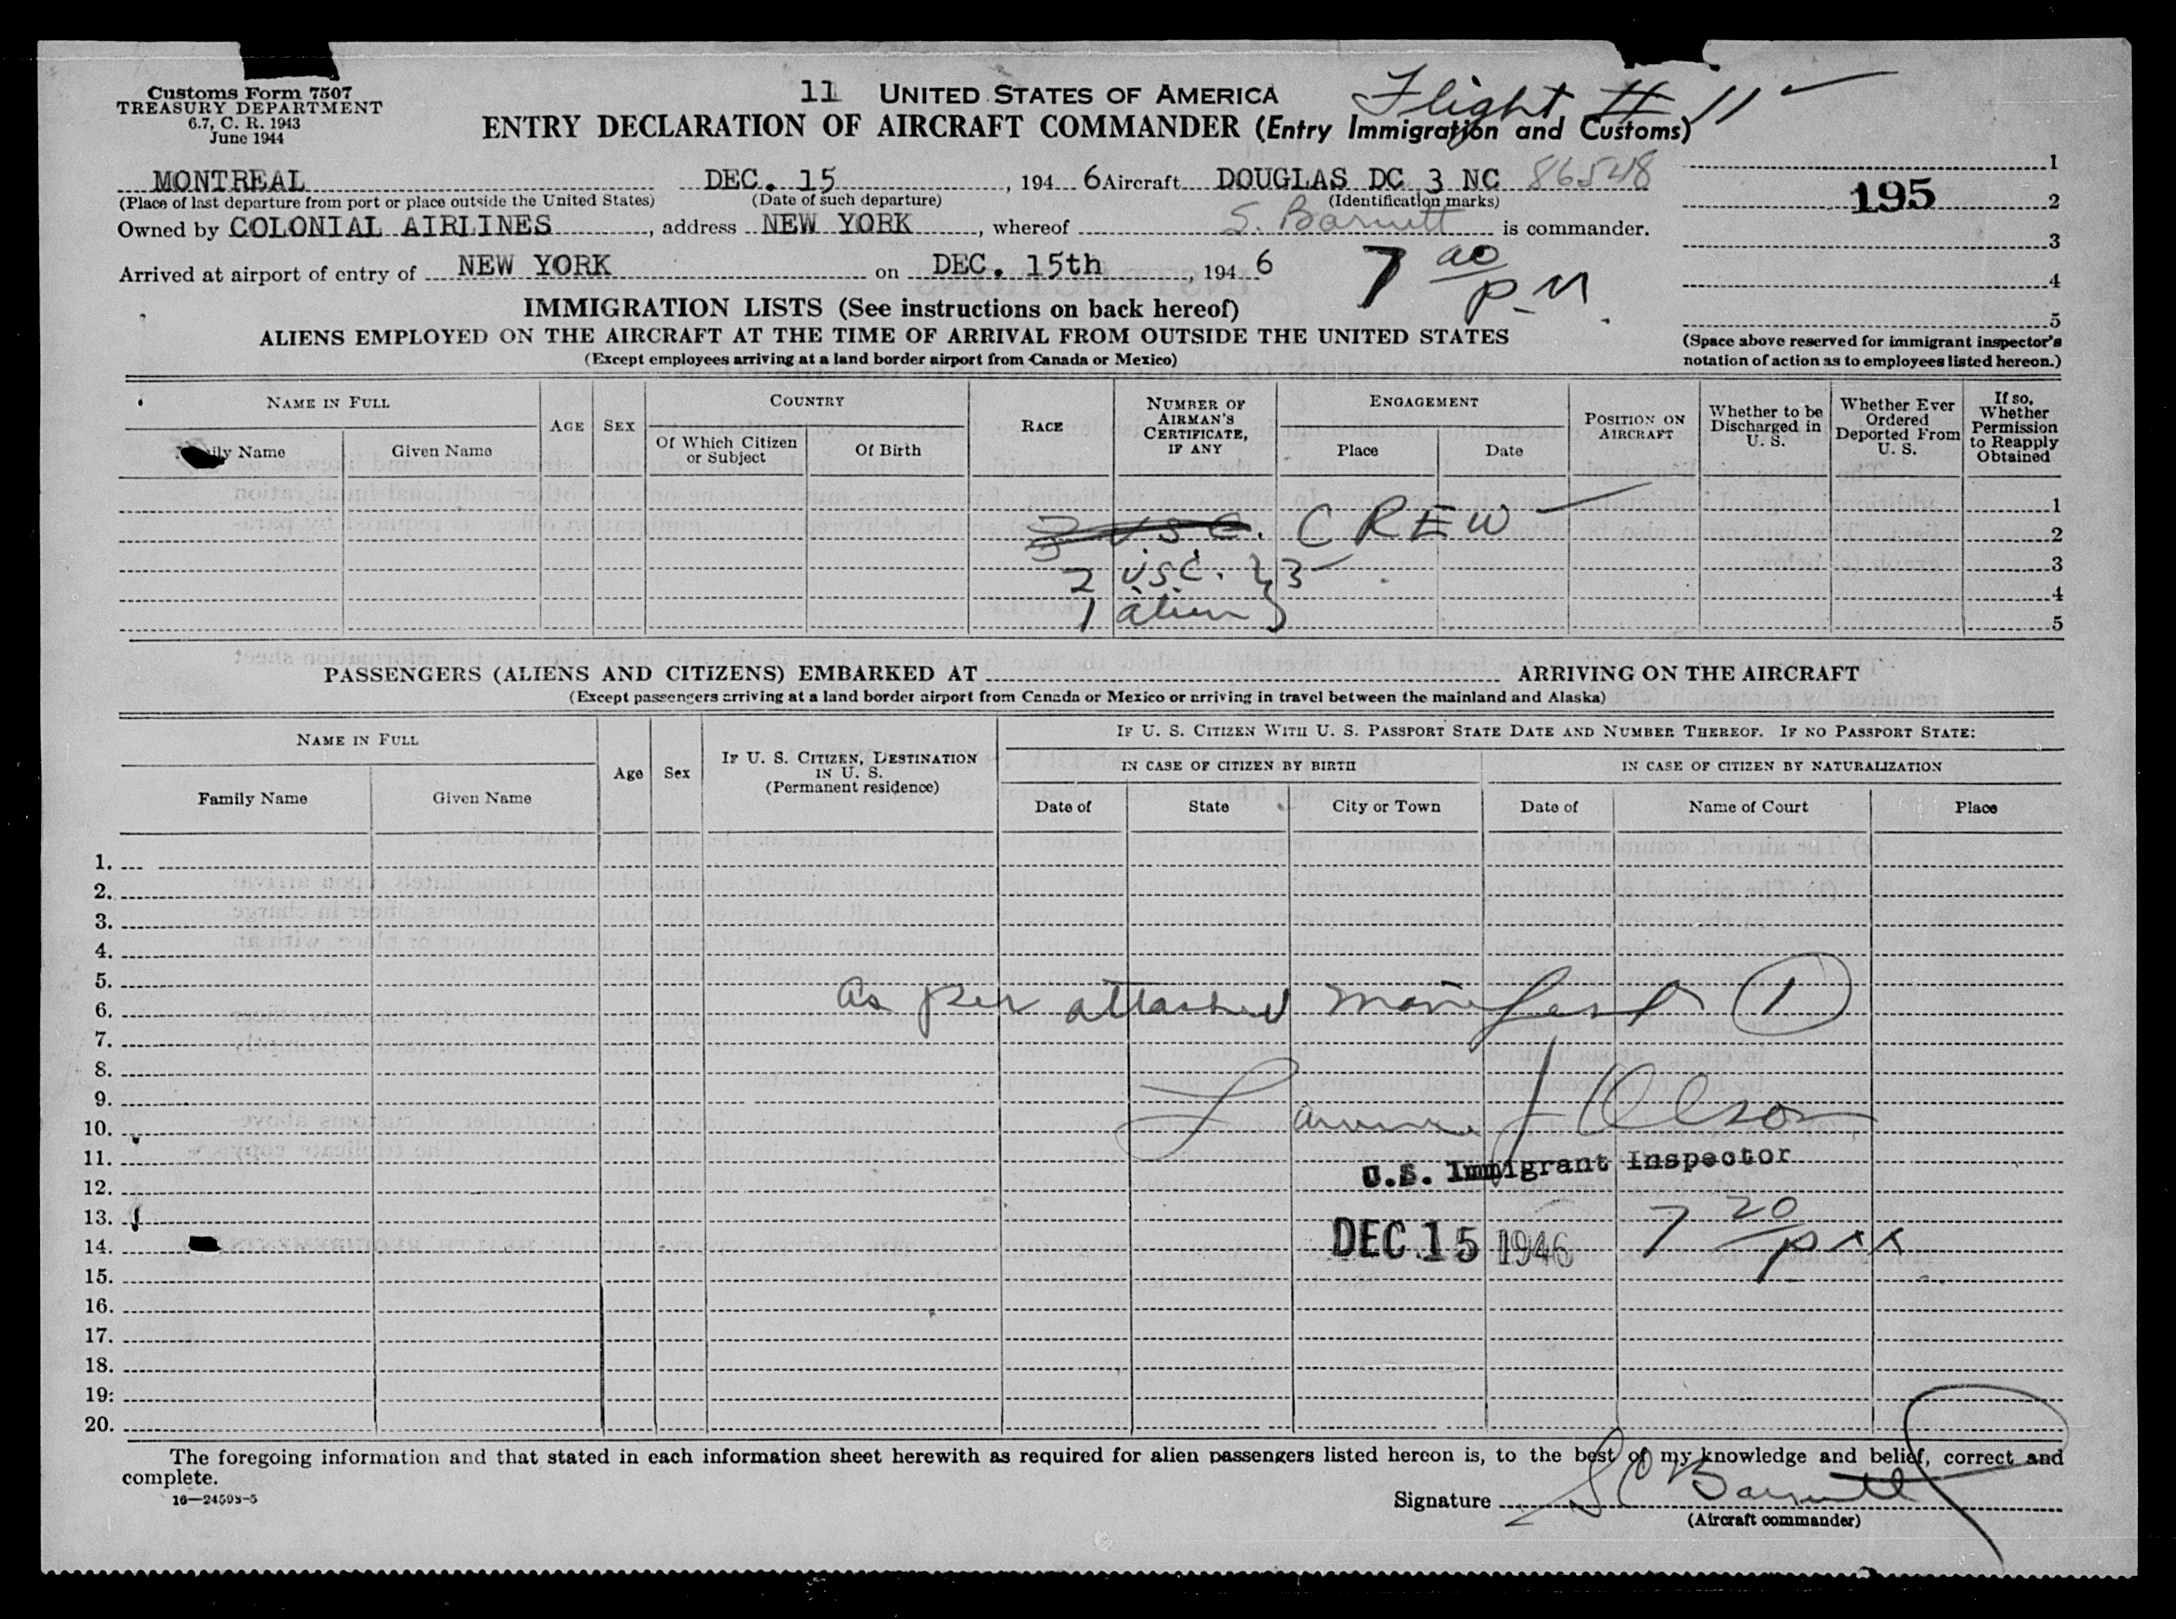 Customs Form 7507
TREASURY DEPARTMENT
6.7, C. R. 1943
June 1944
11 UNITED STATES OF AMERICA
Flight # 11
ENTRY DECLARATION OF AIRCRAFT COMMANDER (Entry Immigration and Customs)
MONTREAL DEC. 15, 1946 Aircraft DOUGLAS DC 3 NC 86548
(Place of last departure from port or place outside the United States) (Date of such departure) (Identification marks)
Owned by COLONIAL AIRLINES, address NEW YORK, whereof S. Barnett is commander.
Arrived at airport of entry of NEW YORK on DEC. 15th, 1946
7 00 P.M.
1
195 2
3
4
5
(Space above reserved for immigrant inspector's
notation of action as to employees listed hereon.)
IMMIGRATION LISTS (See instructions on back hereof)
ALIENS EMPLOYED ON THE AIRCRAFT AT THE TIME OF ARRIVAL FROM OUTSIDE THE UNITED STATES
(Except employees arriving at a land border airport from Canada or Mexico)
NAME IN FULL AGE SEX COUNTRY RACE NUMBER OF AIRMAN'S CERTIFICATE, IF ANY ENGAGEMENT POSITION ON AIRCRAFT Whether to be Discharged in U. S. Whether Ever Ordered Deported From U. S. If so, Whether Permission to Reapply Obtained
Family Name Given Name Of Which Citizen or Subject Of Birth Place Date
1
3 U.S.C. CREW 2
2 USC. } 3 3
1 alien 4
5
PASSENGERS (ALIENS AND CITIZENS) EMBARKED AT ARRIVING ON THE AIRCRAFT
(Except passengers arriving at a land border airport from Canada or Mexico or arriving in travel between the mainland and Alaska)
NAME IN FULL Age Sex IF U. S. CITIZEN, DESTINATION IN U. S. (Permanent residence) IF U. S. CITIZEN WITH U. S. PASSPORT STATE DATE AND NUMBER THEREOF. IF NO PASSPORT STATE:
IN CASE OF CITIZEN BY BIRTH IN CASE OF CITIZEN BY NATURALIZATION
Family Name Given Name Date of State City or Town Date of Name of Court Place
1.
2.
3.
4.
5.
6. As per attached manifest 1
7.
8.
9.
10. J Olson
11. U.S. Immigrant Inspector
12.
13.
14. DEC 15 1946 7 20
15.
16.
17.
18.
19.
20.
The foregoing information and that stated in each information sheet herewith as required for alien passengers listed hereon is, to the best of my knowledge and belief, correct and
complete.
16—24593-5
Signature S C Barnett
(Aircraft commander)